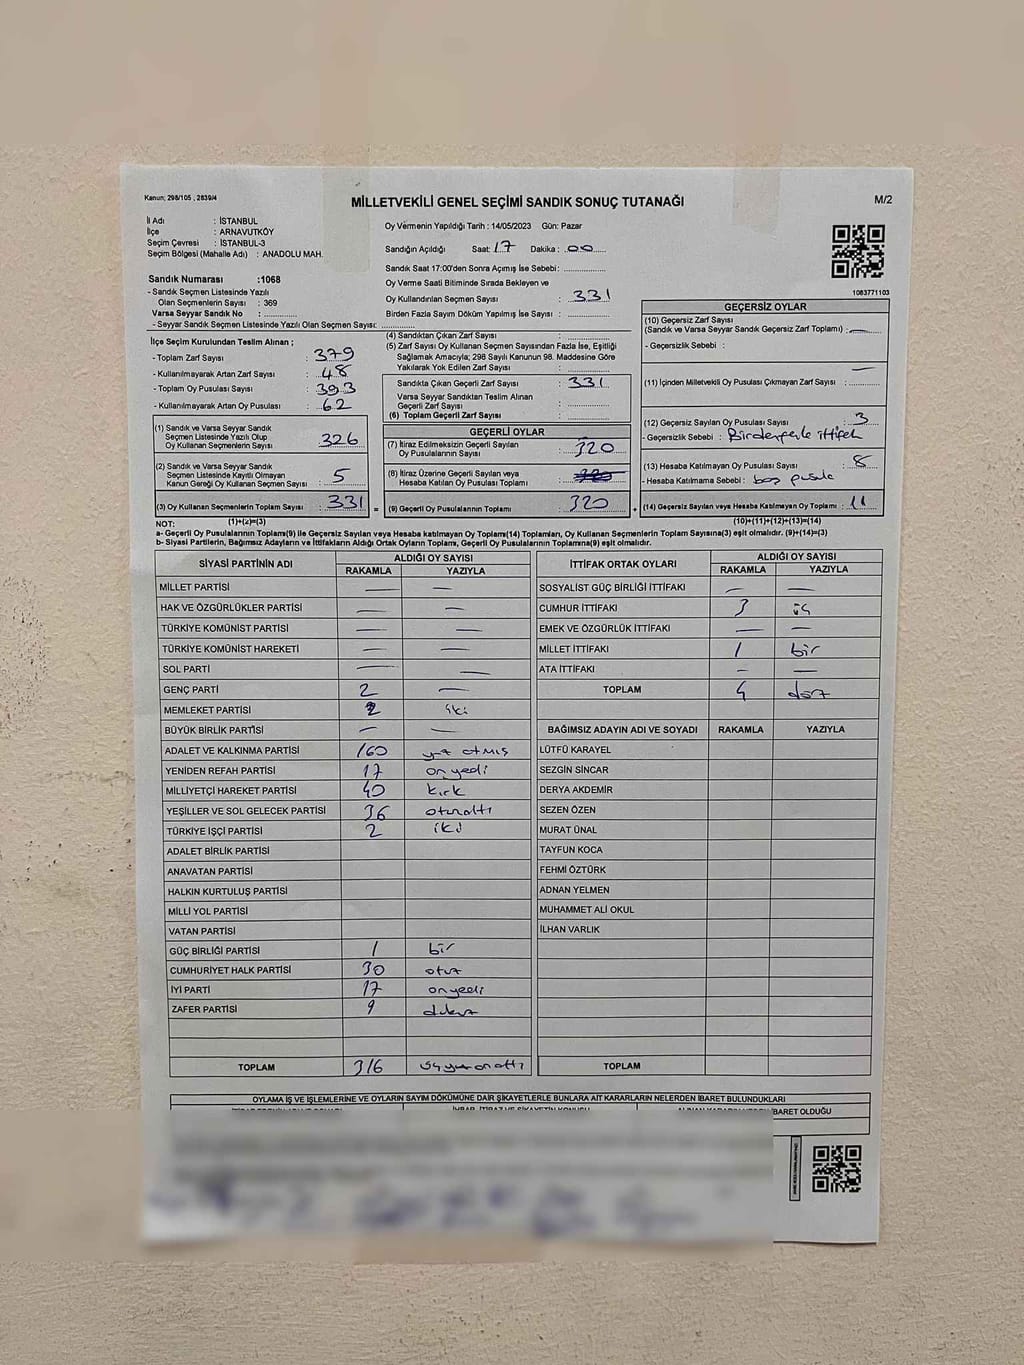 Kanun; 298/105 , 2839/4
MİLLETVEKİLİ GENEL SEÇİMİ SANDIK SONUÇ TUTANAĞI
M/2
İl Adı : İSTANBUL
İlçe : ARNAVUTKÖY
Seçim Çevresi : İSTANBUL-3
Seçim Bölgesi (Mahalle Adı) : ANADOLU MAH.
Sandık Numarası :1068
- Sandık Seçmen Listesinde Yazılı
Olan Seçmenlerin Sayısı : 369
Varsa Seyyar Sandık No :
- Seyyar Sandık Seçmen Listesinde Yazılı Olan Seçmen Sayısı:
İlçe Seçim Kurulundan Teslim Alınan ;
- Toplam Zarf Sayısı : 379
- Kullanılmayarak Artan Zarf Sayısı : 48
- Toplam Oy Pusulası Sayısı : 393
- Kullanılmayarak Artan Oy Pusulası : 62
(1) Sandık ve Varsa Seyyar Sandık
Seçmen Listesinde Yazılı Olup
Oy Kullanan Seçmenlerin Sayısı : 326
(2) Sandık ve Varsa Seyyar Sandık
Seçmen Listesinde Kayıtlı Olmayan
Kanun Gereği Oy Kullanan Seçmen Sayısı : 5
(3) Oy Kullanan Seçmenlerin Toplam Sayısı : 331 =
(1)+(2)=(3)
Oy Vermenin Yapıldığı Tarih : 14/05/2023 Gün: Pazar
Sandığın Açıldığı Saat: 17 Dakika : 00
Sandık Saat 17:00'den Sonra Açımış İse Sebebi:
Oy Verme Saati Bitiminde Sırada Bekleyen ve
Oy Kullandırılan Seçmen Sayısı : 331
Birden Fazla Sayım Döküm Yapılmış İse Sayısı :
(4) Sandıktan Çıkan Zarf Sayısı :
(5) Zarf Sayısı Oy Kullanan Seçmen Sayısından Fazla İse, Eşitliği
Sağlamak Amacıyla; 298 Sayılı Kanunun 98. Maddesine Göre
Yakılarak Yok Edilen Zarf Sayısı :
Sandıkta Çıkan Geçerli Zarf Sayısı : 331
Varsa Seyyar Sandıktan Teslim Alınan
Geçerli Zarf Sayısı :
(6) Toplam Geçerli Zarf Sayısı :
GEÇERLİ OYLAR
(7) İtiraz Edilmeksizin Geçerli Sayılan
Oy Pusulalarının Sayısı : 320
(8) İtiraz Üzerine Geçerli Sayılan veya
Hesaba Katılan Oy Pusulası Toplamı :
(9) Geçerli Oy Pusulalarının Toplamı : 320 +
1083771103
GEÇERSİZ OYLAR
(10) Geçersiz Zarf Sayısı
(Sandık ve Varsa Seyyar Sandık Geçersiz Zarf Toplamı) : —
- Geçersizlik Sebebi :
—
(11) İçinden Milletvekili Oy Pusulası Çıkmayan Zarf Sayısı :
(12) Geçersiz Sayılan Oy Pusulası Sayısı : 3
- Geçersizlik Sebebi :
(13) Hesaba Katılmayan Oy Pusulası Sayısı : 8
- Hesaba Katılmama Sebebi : boş pusula
(14) Geçersiz Sayılan veya Hesaba Katılmayan Oy Toplamı : 11
(10)+(11)+(12)+(13)=(14)
NOT:
a- Geçerli Oy Pusulalarının Toplamı(9) ile Geçersiz Sayılan veya Hesaba katılmayan Oy Toplam(14) Toplamları, Oy Kullanan Seçmenlerin Toplam Sayısına(3) eşit olmalıdır. (9)+(14)=(3)
b- Siyasi Partilerin, Bağımsız Adayların ve İttifakların Aldığı Ortak Oyların Toplamı, Geçerli Oy Pusulalarının Toplamına(9) eşit olmalıdır.
SİYASİ PARTİNİN ADI ALDIĞI OY SAYISI
RAKAMLA YAZIYLA
MİLLET PARTİSİ — —
HAK VE ÖZGÜRLÜKLER PARTİSİ — —
TÜRKİYE KOMÜNİST PARTİSİ — —
TÜRKİYE KOMÜNİST HAREKETİ — —
SOL PARTİ — —
GENÇ PARTİ 2 —
MEMLEKET PARTİSİ 2 iki
BÜYÜK BİRLİK PARTİSİ — —
ADALET VE KALKINMA PARTİSİ 160 yüz otmış
YENİDEN REFAH PARTİSİ 17 onyedi
MİLLİYETÇİ HAREKET PARTİSİ 40 kırk
YEŞİLLER VE SOL GELECEK PARTİSİ 36 otuzaltı
TÜRKİYE İŞÇİ PARTİSİ 2 iki
ADALET BİRLİK PARTİSİ
ANAVATAN PARTİSİ
HALKIN KURTULUŞ PARTİSİ
MİLLİ YOL PARTİSİ
VATAN PARTİSİ
GÜÇ BİRLİĞİ PARTİSİ 1 bir
CUMHURİYET HALK PARTİSİ 30 otuz
İYİ PARTİ 17 onyedi
ZAFER PARTİSİ 9 dokuz
TOPLAM 316 üçyüzonaltı
İTTİFAK ORTAK OYLARI ALDIĞI OY SAYISI
RAKAMLA YAZIYLA
SOSYALİST GÜÇ BİRLİĞİ İTTİFAKI — —
CUMHUR İTTİFAKI 3 üç
EMEK VE ÖZGÜRLÜK İTTİFAKI — —
MİLLET İTTİFAKI 1 bir
ATA İTTİFAKI — —
TOPLAM 4 dört
BAĞIMSIZ ADAYIN ADI VE SOYADI RAKAMLA YAZIYLA
LÜTFÜ KARAYEL
SEZGİN SİNCAR
DERYA AKDEMİR
SEZEN ÖZEN
MURAT ÜNAL
TAYFUN KOCA
FEHMİ ÖZTÜRK
ADNAN YELMEN
MUHAMMET ALİ OKUL
İLHAN VARLIK
TOPLAM
OYLAMA İŞ VE İŞLEMLERİNE VE OYLARIN SAYIM DÖKÜMÜNE DAİR ŞİKAYETLERLE BUNLARA AİT KARARLARIN NELERDEN İBARET BULUNDUKLARI